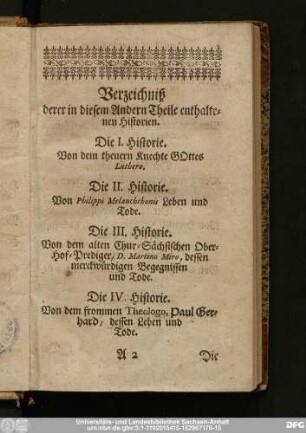 Verzeichniß
derer in diesem Andern Theile enthalte-
nen Historien.
Die I. Historie.
Von dem theuern Knechte GOttes
Luthero.
Die II. Historie.
Von Philippi Melanchthonis Leben und
Tode.
Die III. Historie.
Von dem alten Chur-Sächsischen Ober-
Hof-Prediger, D. Martino Miro, dessen
merckwürdigen Begegnissen
und Tode.
Die IV. Historie.
Von dem frommen Theologo, Paul Ger-
hard, dessen Leben und
Tode.
A 2
Die
Universitäts- und Landesbibliothek Sachsen-Anhalt
urn:nbn:de:gbv:3:1-1192015415-152967176-15
DFG